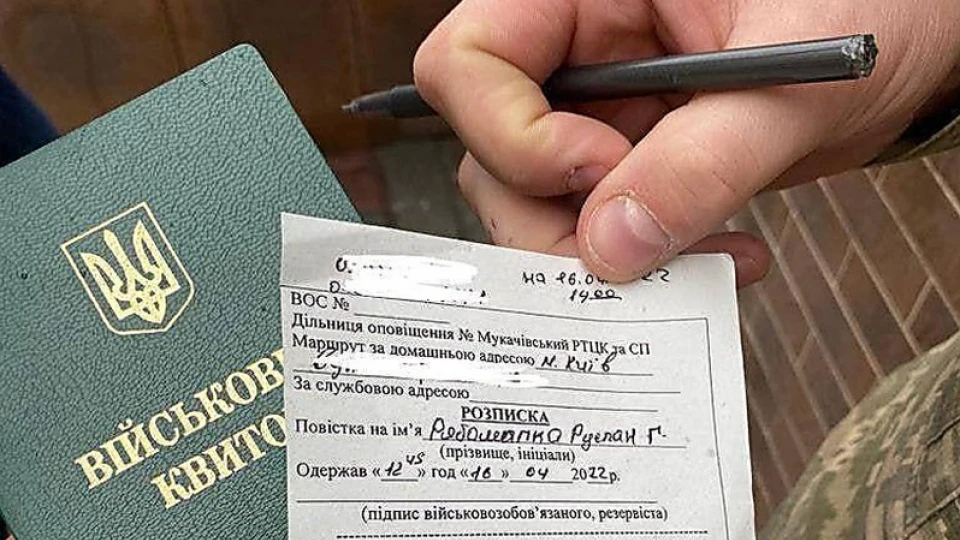 ВІЙСЬКОВ
КВИТО
на 16.04. 22
14 00
ВОС №
Дільниця оповіщення № Мукачівський РТЦК та СП
Маршрут за домашньою адресою м. Київ
За службовою адресою
РОЗПИСКА
Повістка на ім'я Руслан Г.
(прізвище, ініціали)
Одержав «12 45» год «16» 04 2022р.
(підпис військовозобов'язаного, резервіста)